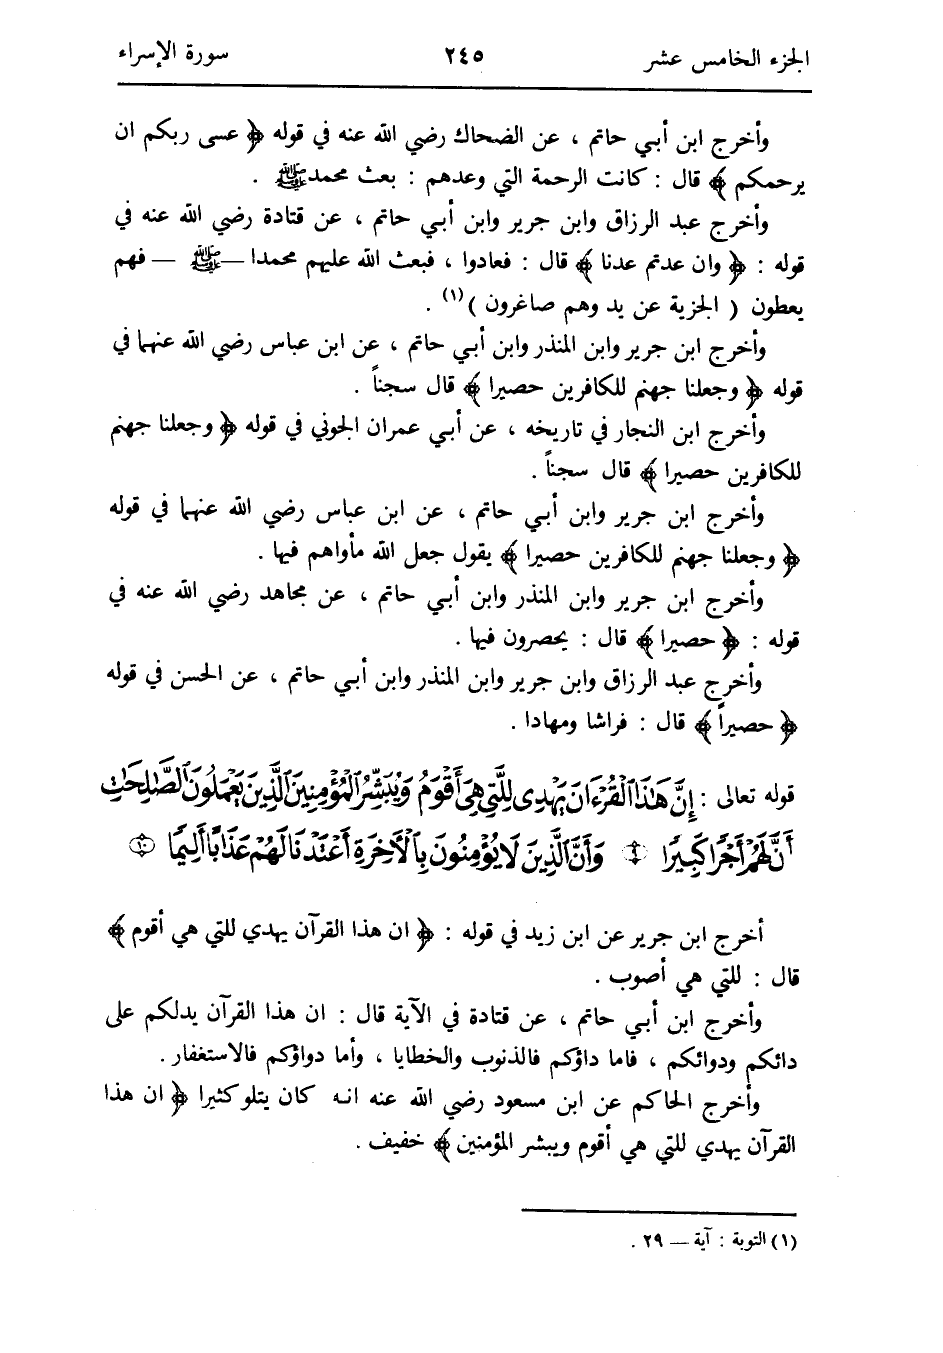 الجزء الخامس عشر ٢٤٥ سورة الإسراء
وأخرج ابن أبي حاتم ، عن الضحاك رضي الله عنه في قوله ﴿ عسى ربكم ان
يرحمكم ﴾ قال : كانت الرحمة التي وعدهم : بعث محمد ﷺ .
وأخرج عبد الرزاق وابن جرير وابن أبي حاتم ، عن قتادة رضي الله عنه في
قوله : ﴿ وان عدتم عدنا ﴾ قال : فعادوا ، فبعث الله عليهم محمدا — ﷺ — فهم
يعطون ( الجزية عن يد وهم صاغرون )(١) .
وأخرج ابن جرير وابن المنذر وابن أبي حاتم ، عن ابن عباس رضي الله عنهما في
قوله ﴿ وجعلنا جهنم للكافرين حصيرا ﴾ قال سجناً .
وأخرج ابن النجار في تاريخه ، عن أبي عمران الجوني في قوله ﴿ وجعلنا جهنم
للكافرين حصيرا ﴾ قال سجناً .
وأخرج ابن جرير وابن أبي حاتم ، عن ابن عباس رضي الله عنهما في قوله
﴿ وجعلنا جهنم للكافرين حصيرا ﴾ يقول جعل الله مأواهم فيها .
وأخرج ابن جرير وابن المنذر وابن أبي حاتم ، عن مجاهد رضي الله عنه في
قوله : ﴿ حصيرا ﴾ قال : يحصرون فيها .
وأخرج عبد الرزاق وابن جرير وابن المنذر وابن أبي حاتم ، عن الحسن في قوله
﴿ حصيراً ﴾ قال : فراشا ومهادا .
قوله تعالى : إِنَّ هَٰذَا ٱلْقُرْءَانَ يَهْدِى لِلَّتِى هِىَ أَقْوَمُ وَيُبَشِّرُ ٱلْمُؤْمِنِينَ ٱلَّذِينَ يَعْمَلُونَ ٱلصَّٰلِحَٰتِ
أَنَّ لَهُمْ أَجْرًا كَبِيرًا ۝٩ وَأَنَّ ٱلَّذِينَ لَا يُؤْمِنُونَ بِٱلْأَخِرَةِ أَعْتَدْنَا لَهُمْ عَذَابًا أَلِيمًا ۝١٠
أخرج ابن جرير عن ابن زيد في قوله : ﴿ ان هذا القرآن يهدي للتي هي أقوم ﴾
قال : للتي هي أصوب .
وأخرج ابن أبي حاتم ، عن قتادة في الآية قال : ان هذا القرآن يدلكم على
دائكم ودوائكم ، فاما داؤكم فالذنوب والخطايا ، وأما دواؤكم فالاستغفار .
وأخرج الحاكم عن ابن مسعود رضي الله عنه انه كان يتلو كثيرا ﴿ ان هذا
القرآن يهدي للتي هي أقوم ويبشر المؤمنين ﴾ خفيف .
(١) التوبة : آية — ٢٩ .